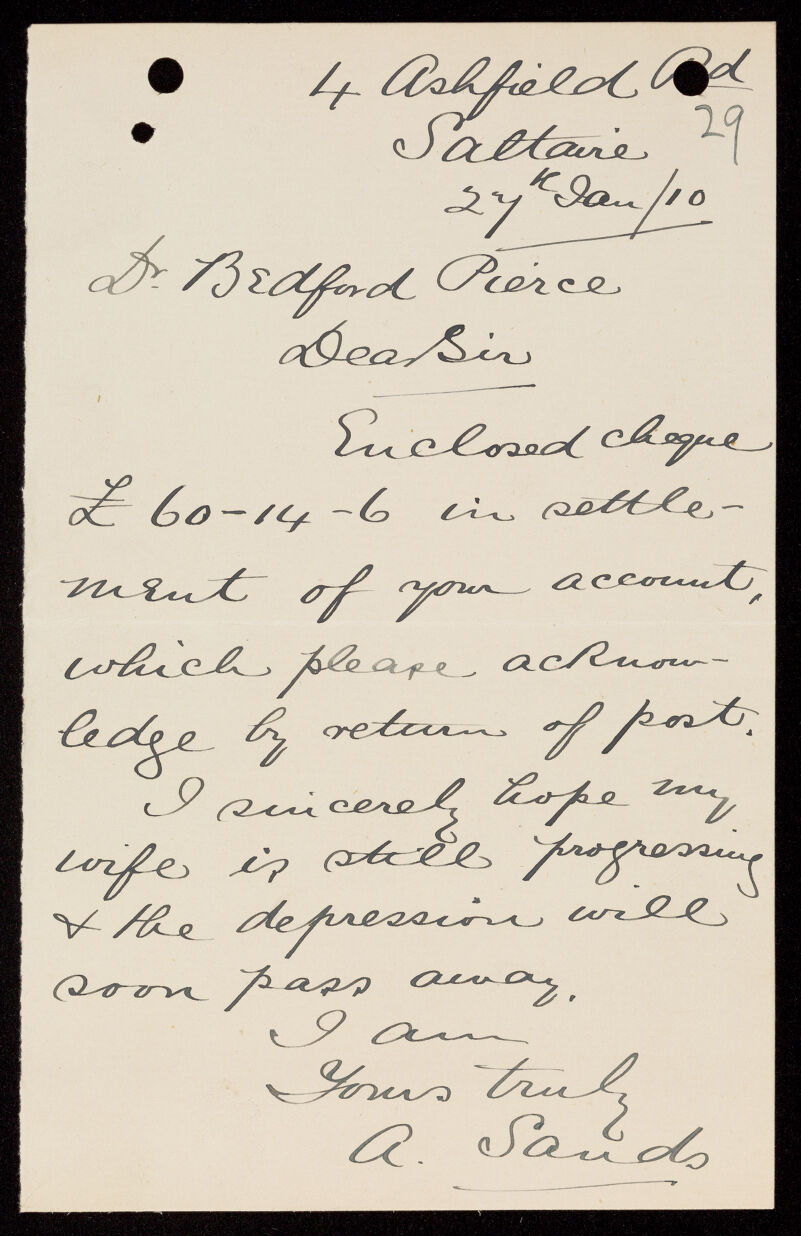 4 Ashfield Rd
29
Saltaire
27th Jan/10
Dr. Bedford Pierce
Dear Sir
Enclosed cheque
£ 60-14-6 in settle-
ment of your account,
which please acknow-
ledge by return of post.
I sincerely hope my
wife is still progressing
& the depression will
soon pass away.
I am
Yours truly
A. Sands